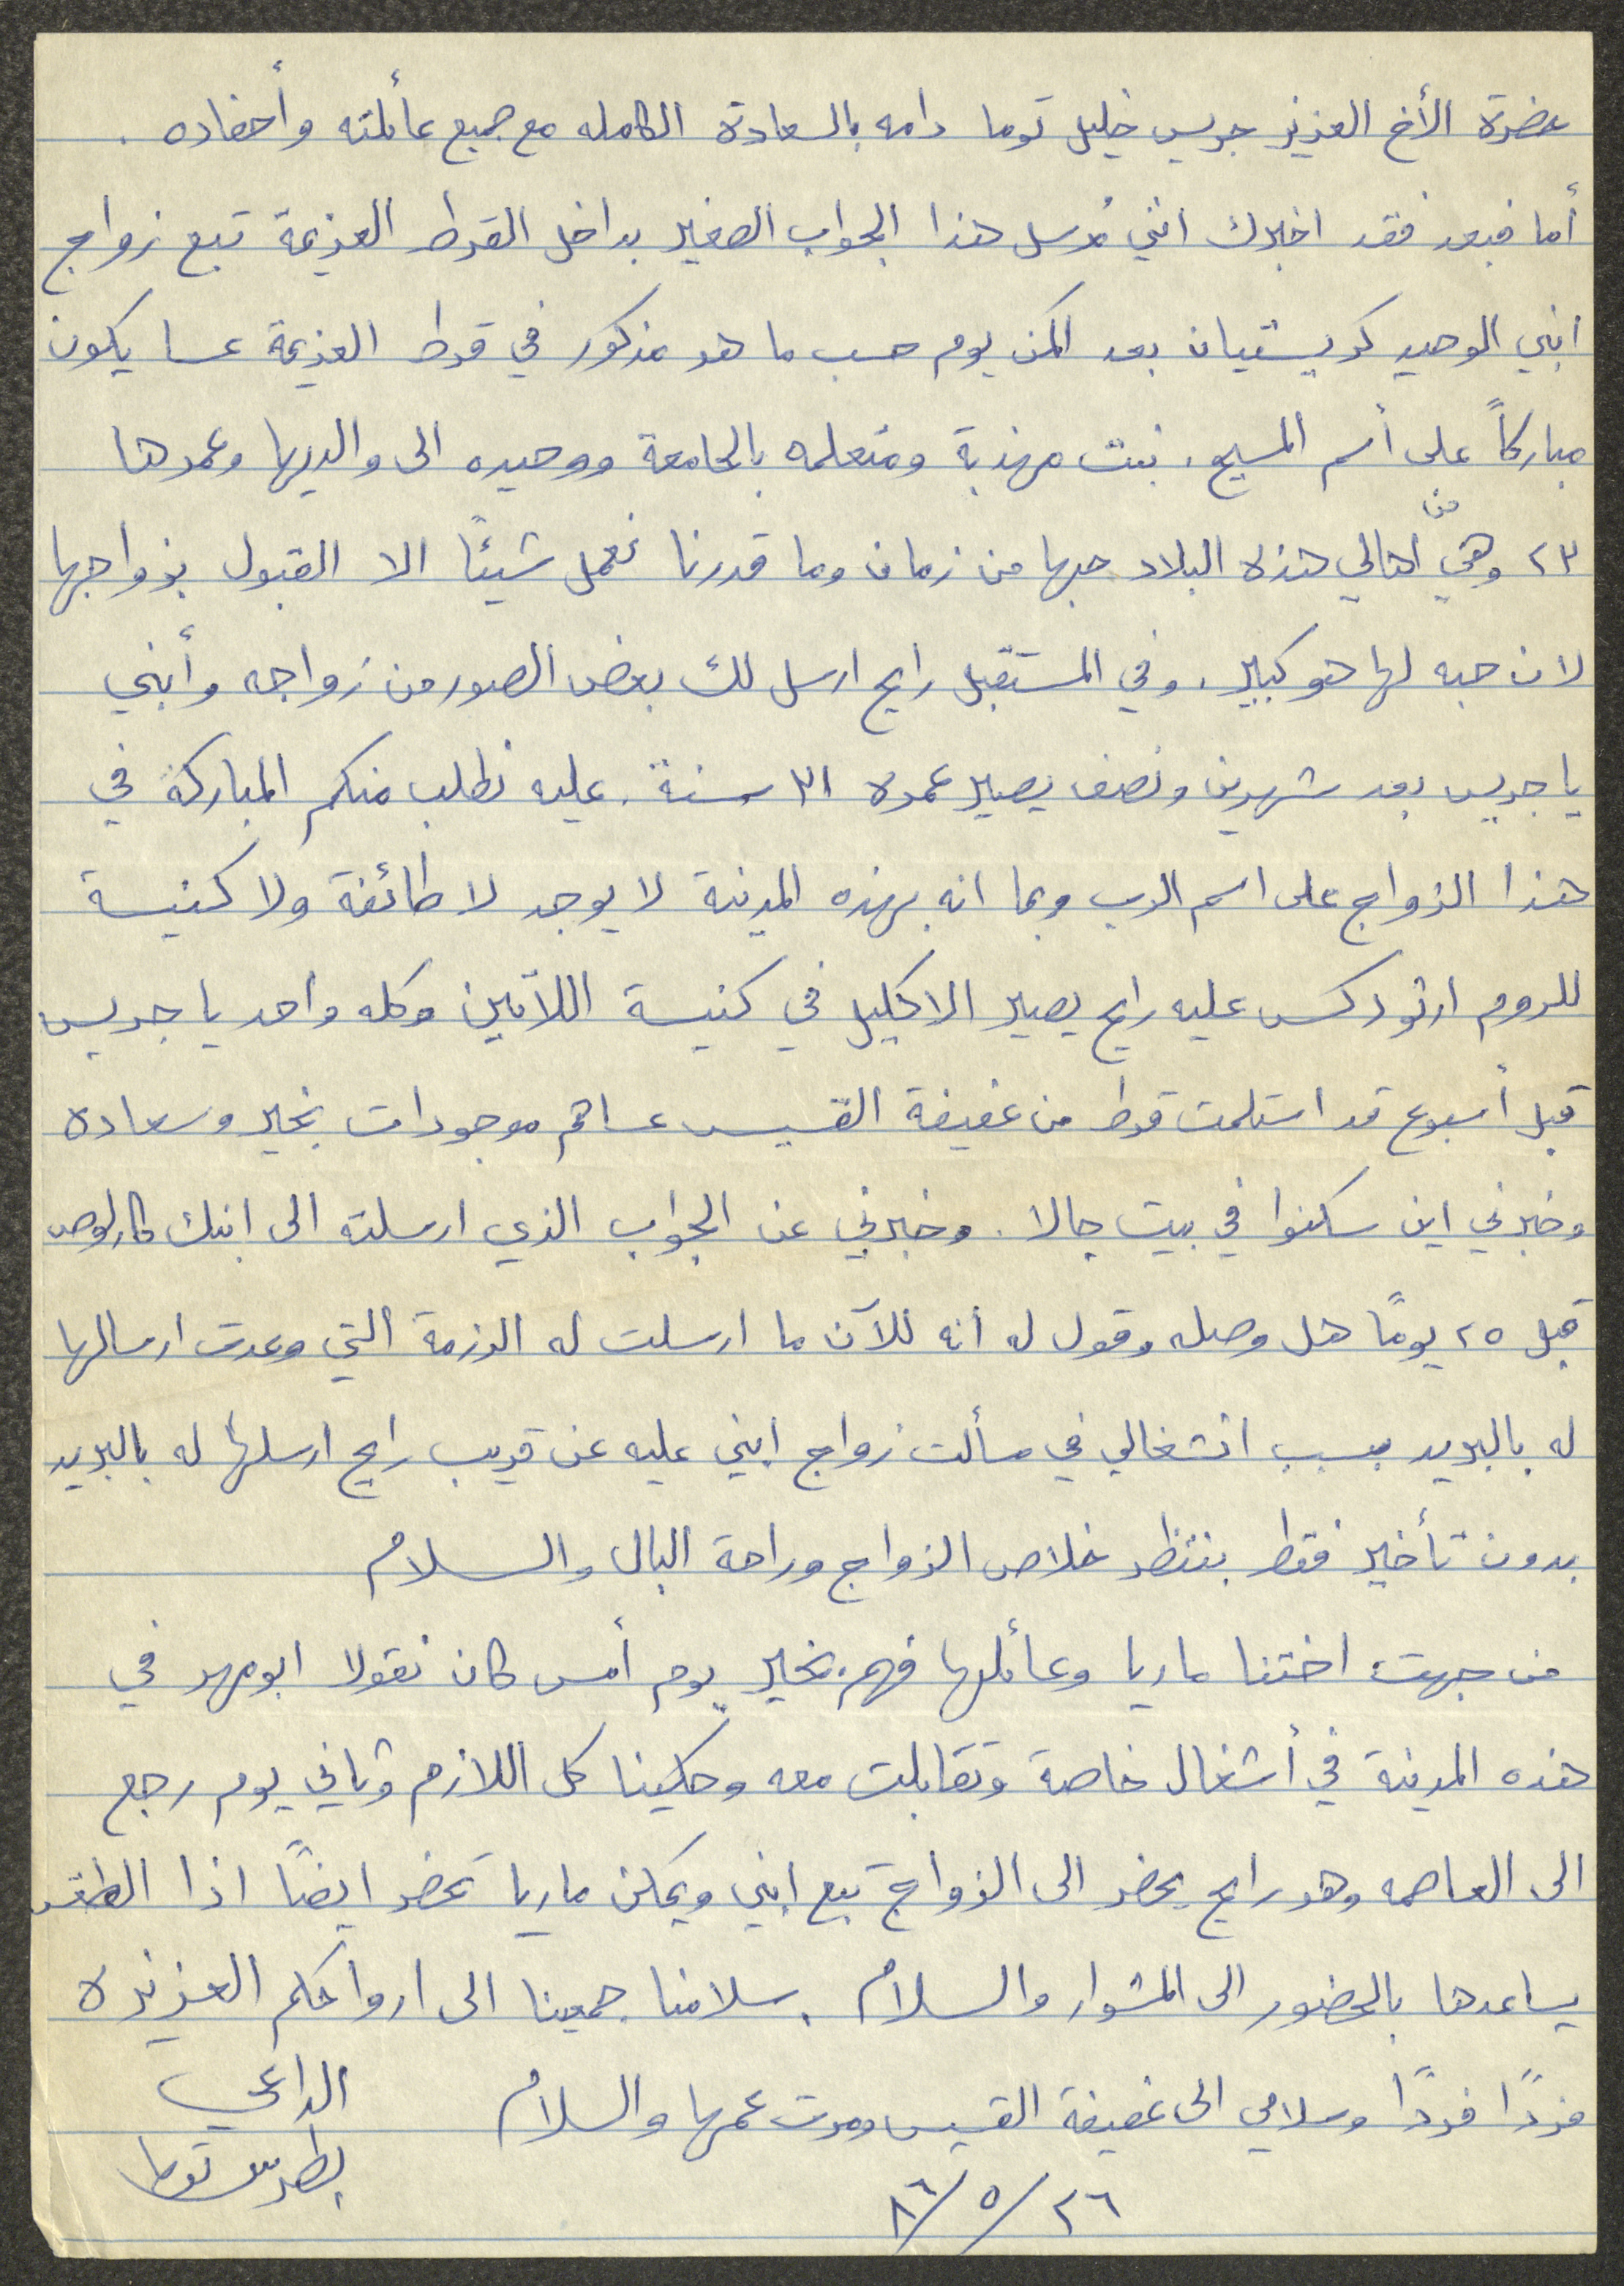 حضرة الأخ العزيز جريس خليل توما دامه بالسعادة الكامله مع جميع عأئلته وأحفاده .
أما فبعد فقد اخبرك انني مُرسل هذا الجواب الصغير بداخل القرط العزيمة تبع زواج
ابني الوحيد كريستيان بعد اكمن يوم حسب ما هو مذكور في قرط العزيمة عسا يكون
مباركاً على أسم المسيح . بنت مهذبة ومتعلمه بالجامعة ووحيده الى والديها وعمرها
٢٣ وهيّ من اهالي هذه البلاد حبها من زمان وما قدرنا نعمل شيئاً الا القبول بزواجها
لان حبه لها هو كبير . وفي المستقبل رايح ارسل لك بعض الصور من زواجه وأبني
يا جريس بعد شهرين ونصف يصير عمره ٣١ سنة . عليه نطلب منكم المباركة في
هذا الزواج على اسم الرب وبما انه بهذه المدينة لا يوجد لا طائفة ولا كنيسة
للروم ارثوذكس عليه رايح يصير الاكليل في كنيسة اللاتين وكله واحد يا جريس
قبل أسبوع قد استلمت قرط من عفيفة القسيس عساهم موجودات بخير وسعاده
وخبرني اين سكنوا في بيت جالا . وخبرني عن الجواب الذي ارسلته الى ابنك كارلوص
قبل ٢٥ يوماً هل وصله وقول له انه للآن ما ارسلت له الرزمة التي وعدت ارسالها
له بالبريد بسبب انشغالي في مسألت زواج ابني عليه عن قريب رايح ارسلها له بالبريد
بدون تأخير فقط بنتظر خلاص الزواج وراحة البال والسلام
من جهت اختنا ماريا وعأئلها فهم بخير يوم أمس كان نقولا ابو مهر في
هذه المدينة في أشغال خاصة وتقابلت معه وحكينا كل اللازم وثاني يوم رجع
الى العاصمه وهو رايح يحضر الى الزواج تبع ابني ويمكن ماريا تحضر ايضاً اذا الطقس
يساعدها بالحضور الى المشوار والسلام . سلامنا جميعنا الى ارواحكم العزيزه
فرداً فرداً وسلامي الى عفيفة القسيس ومرت عمها والسلام
الداعي
بطرس توما
٢٦/٥/٨٦